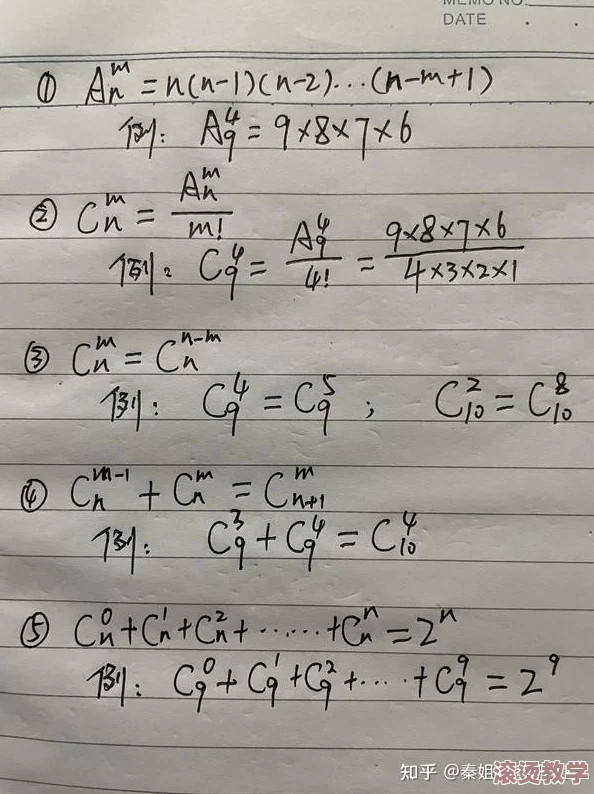 MEMO NO.
DATE . .
① Aₙᵐ = n(n-1)(n-2)...(n-m+1)
例: A₉⁴ = 9×8×7×6
② Cₙᵐ = Aₙᵐ/m!
例: C₉⁴ = A₉⁴/4! = 9×8×7×6/4×3×2×1
③ Cₙᵐ = Cₙⁿ⁻ᵐ
例: C₉⁴ = C₉⁵ ; C₁₀² = C₁₀⁸
④ Cₙᵐ⁻¹ + Cₙᵐ = Cₙ₊₁ᵐ
例: C₉³ + C₉⁴ = C₁₀⁴
⑤ Cₙ⁰+Cₙ¹+Cₙ²+······+Cₙⁿ=2ⁿ
例: C₉⁰+C₉¹+C₉²+....+C₉⁹=2⁹
知乎 @秦姐
滚烫教学